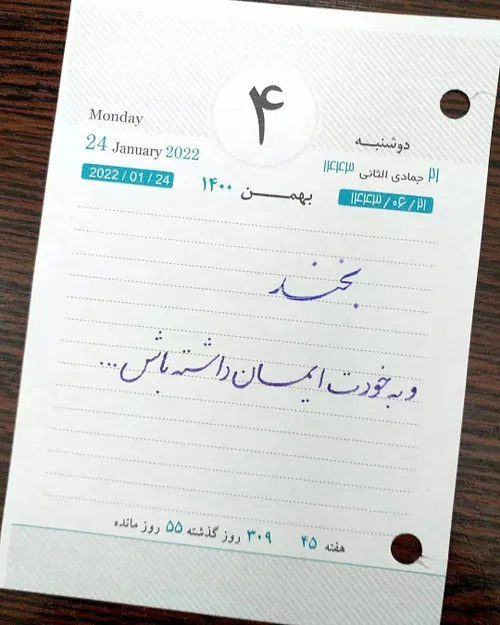 ۴
Monday
دوشنبه
24 January 2022
۲۱ جمادی الثانی ۱۴۴۳
2022 / 01 / 24
بهمن ۱۴۰۰
۱۴۴۳ / ۰۶ / ۲۱
بخند
و به خودت ایمان داشته باش...
هفته ۴۵ ۳۰۹ روز گذشته ۵۵ روز مانده